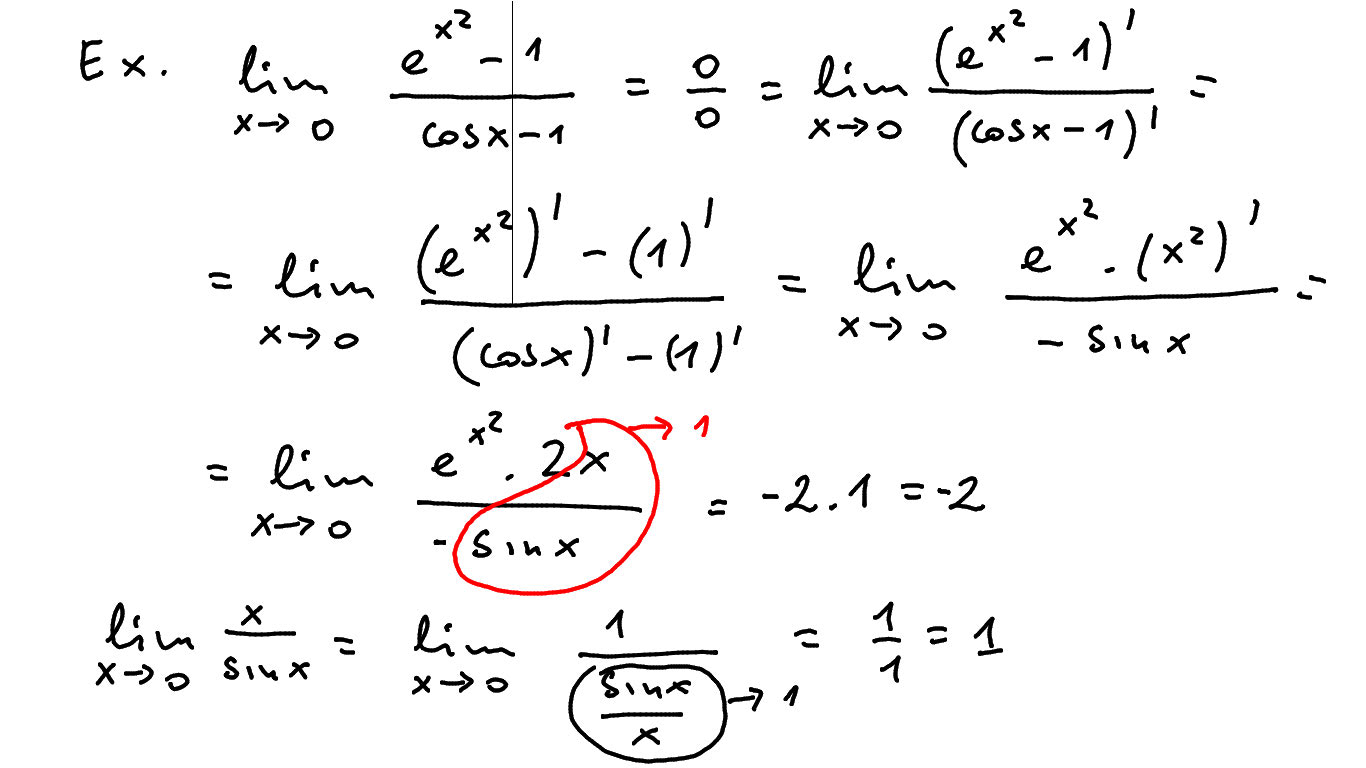 Ex. lim x→0 (e^(x^2) - 1)/(cosx - 1) = 0/0 = lim x→0 (e^(x^2) - 1)'/(cosx - 1)' =
= lim x→0 ((e^(x^2))' - (1)')/((cosx)' - (1)') = lim x→0 (e^(x^2) . (x^2)')/(- sinx) =
= lim x→0 (e^(x^2) . 2x)/(- sinx) → 1 = -2 . 1 = -2
lim x→0 x/sinx = lim x→0 1/(sinx/x) → 1 = 1/1 = 1